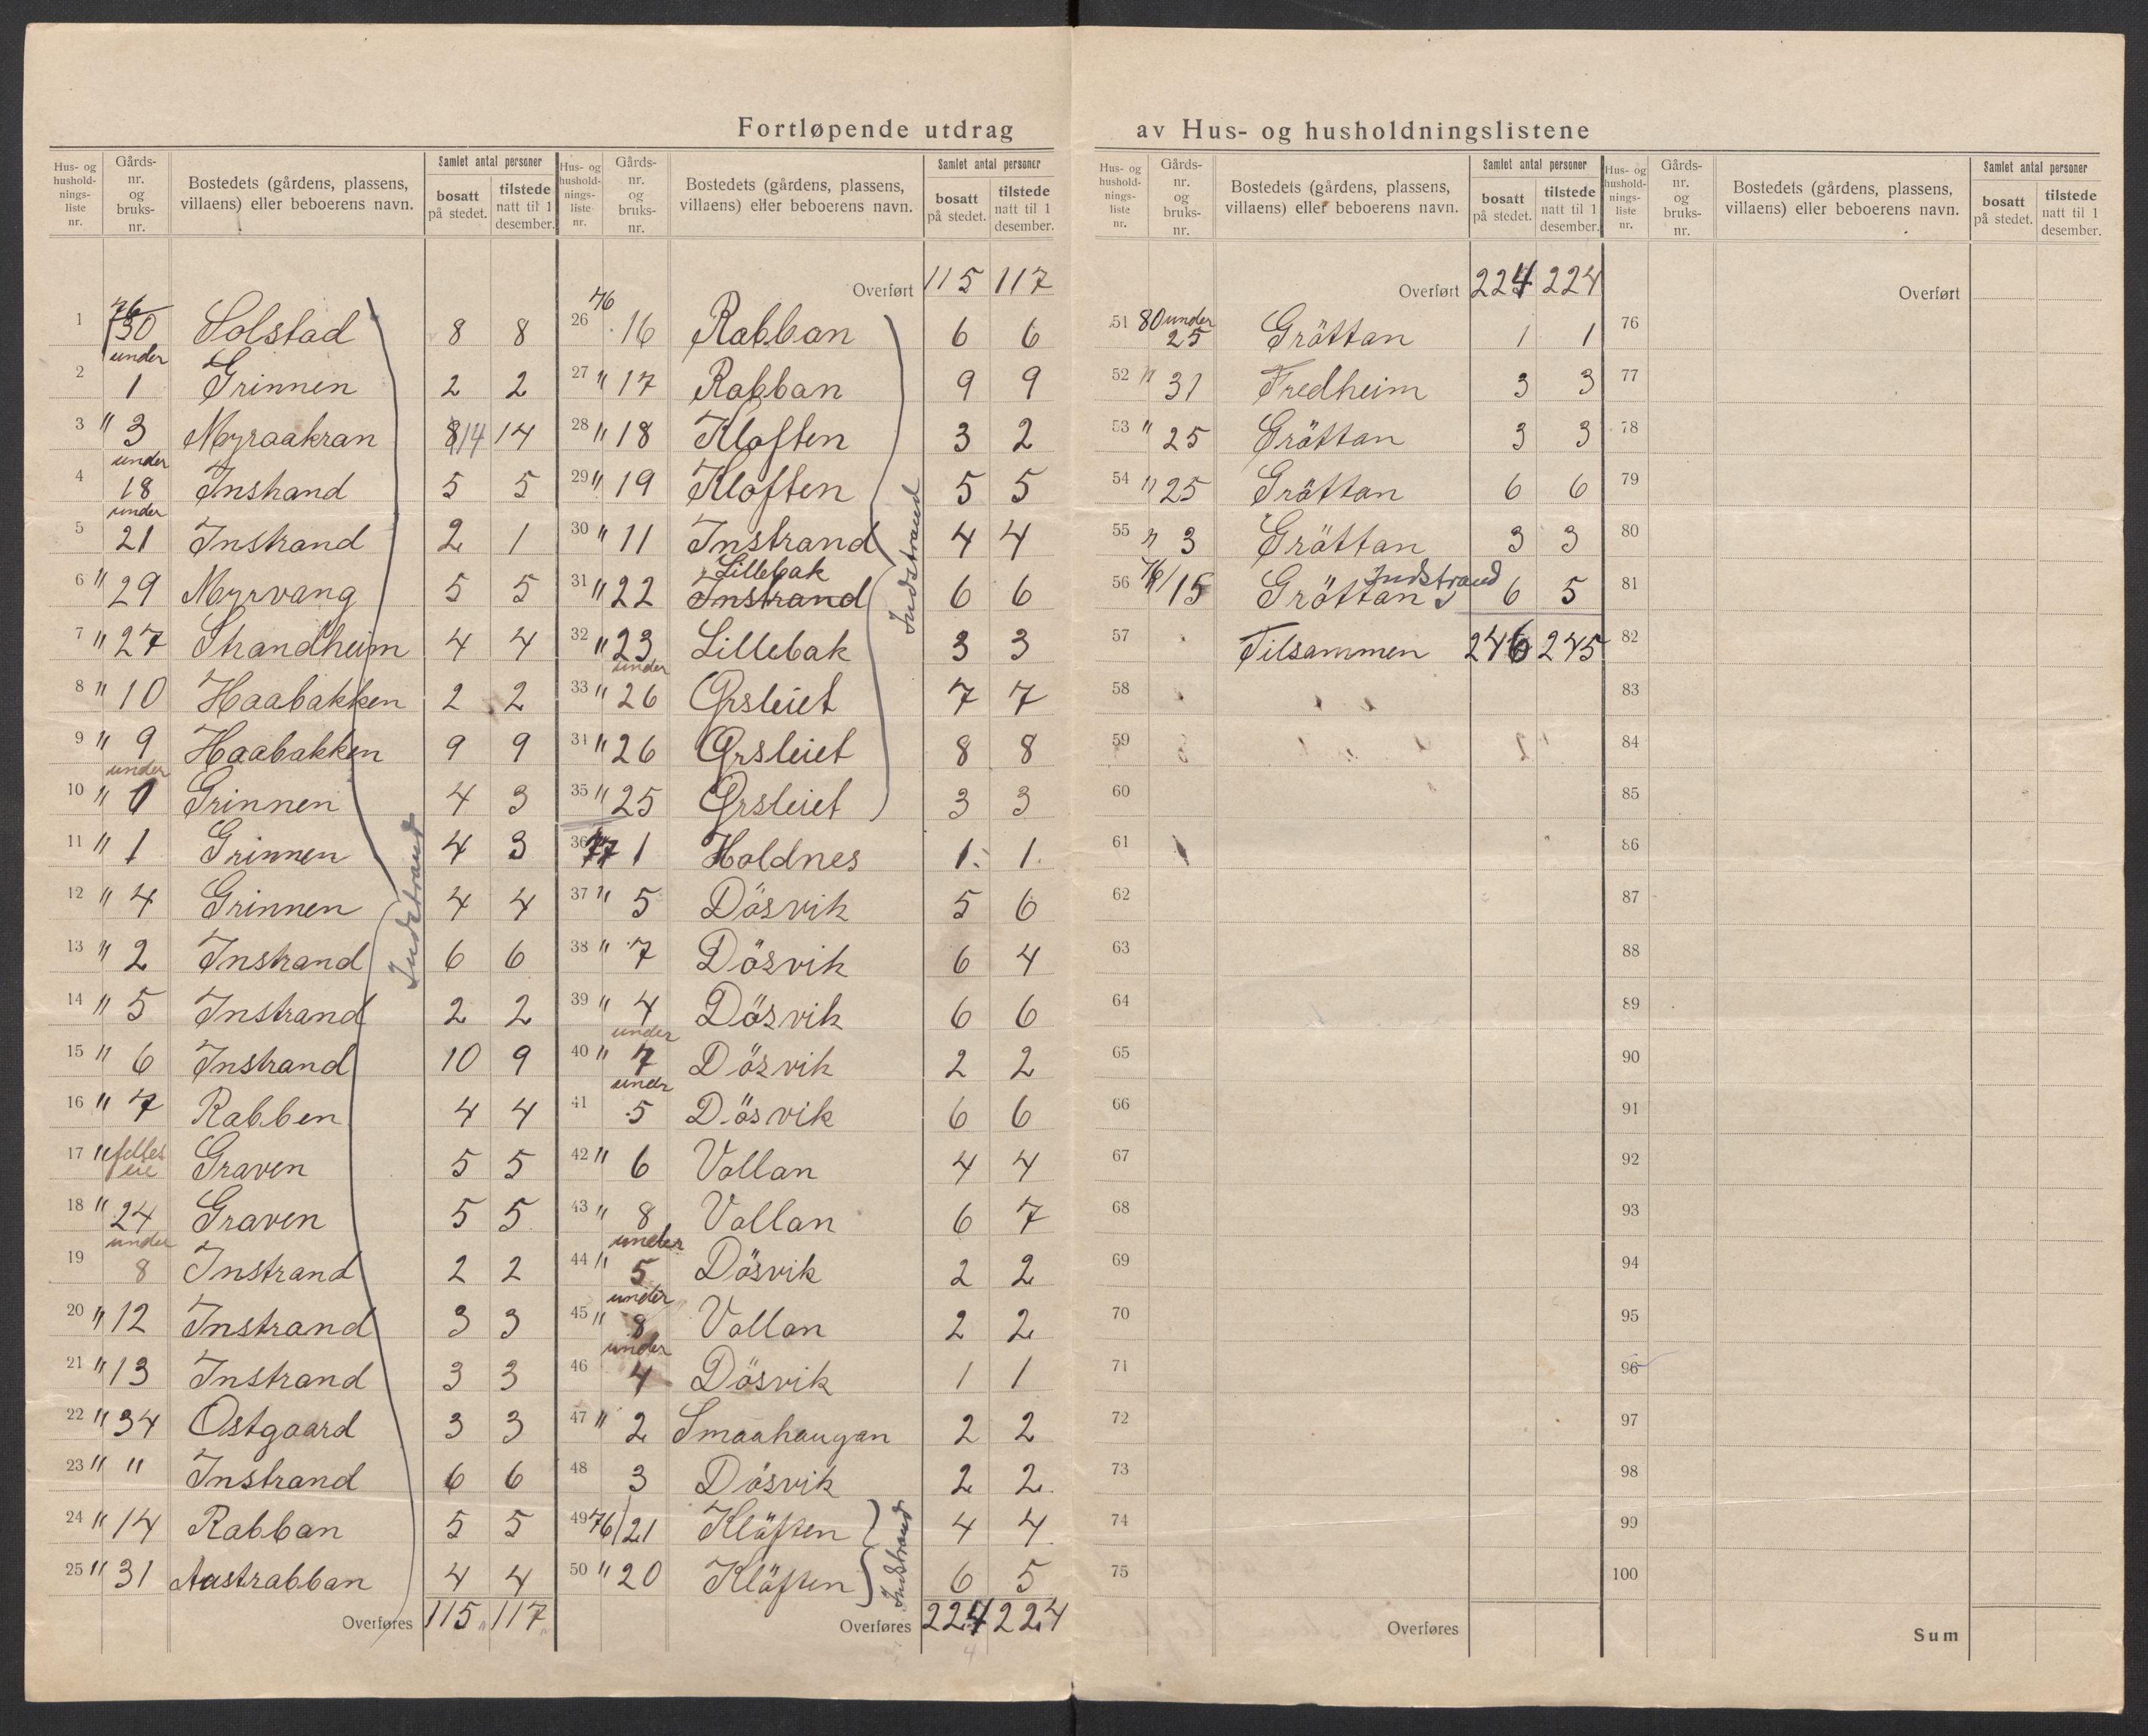 Fortløpende utdrag av Hus- og husholdningslistene
Hus- og hushold-nings-liste nr. Gårds-nr. og bruks-nr. Bostedets (gårdens, plassens, villaens) eller beboerens navn. Samlet antal personer bosatt på stedet. tilstede natt til 1 desember.
1 76/30 Solstad 8 8
2 under 1 Grinnen 2 2
3 " 3 Myraakran 8 14 14
4 under 18 Instrand 5 5
5 under 21 Instrand 2 1
6 " 29 Myrvang 5 5
7 " 27 Strandheim 4 4
8 " 10 Haabakken 2 2
9 " 9 Haabakken 9 9
10 " under 1 Grinnen 4 3
11 " 1 Grinnen 4 3
12 " 4 Grinnen 4 4
13 " 2 Instrand 6 6
14 " 5 Instrand 2 2
15 " 6 Instrand 10 9
16 " 7 Rabben 4 4
17 " felles eie Graven 5 5
18 " 24 Graven 5 5
19 under 8 Instrand 2 2
20 " 12 Instrand 3 3
21 " 13 Instrand 3 3
22 " 34 Ostgaard 3 3
23 " " Instrand 6 6
24 " 14 Rabban 5 5
25 " 31 Austrabban 4 4
Indstrand
Overføres 115 117
Hus- og hushold-nings-liste nr. Gårds-nr. og bruks-nr. Bostedets (gårdens, plassens, villaens) eller beboerens navn. Samlet antal personer bosatt på stedet. tilstede natt til 1 desember.
Overført 115 117
26 76 16 Rabban 6 6
27 " 17 Rabban 9 9
28 " 18 Kloften 3 2
29 " 19 Kloften 5 5
30 " 11 Instrand 4 4
31 " 22 Instrand Lillebak 6 6
32 " 23 Lillebak 3 3
33 " under 26 Ørsleiet 7 7
34 " 26 Ørsleiet 8 8
35 " 25 Ørsleiet 3 3
Indstrand
36 77 1 Holdnes 1 1
37 " 5 Dösvik 5 6
38 " 7 Dösvik 6 4
39 " 4 Dösvik 6 6
40 " under 7 Dösvik 2 2
41 under 5 Dösvik 6 6
42 " 6 Vollan 4 4
43 " 8 Vollan 6 7
44 " under 5 Dösvik 2 2
45 " under 8 Vollan 2 2
46 under 4 Dösvik 1 1
47 " 2 Smaahaugan 2 2
48 3 Dösvik 2 2
49 76/21 Klöften 4 4
50 " 20 Klöften 6 5
Indstrand
Overføres 224 224
4
Hus- og hushold-nings-liste nr. Gårds-nr. og bruks-nr. Bostedets (gårdens, plassens, villaens) eller beboerens navn. Samlet antal personer bosatt på stedet. tilstede natt til 1 desember.
Overført 224 224
51 80 under 25 Gröttan 1 1
52 " 31 Fredheim 3 3
53 " 25 Gröttan 3 3
54 " 25 Gröttan 6 6
55 " 3 Gröttan 3 3
56 76/15 Gröttan Indstrand 6 5
57 Tilsammen 246 245
58
59
60
61
62
63
64
65
66
67
68
69
70
71
72
73
74
75
Overføres
Hus- og hushold-nings-liste nr. Gårds-nr. og bruks-nr. Bostedets (gårdens, plassens, villaens) eller beboerens navn. Samlet antal personer bosatt på stedet. tilstede natt til 1 desember.
Overført
76
77
78
79
80
81
82
83
84
85
86
87
88
89
90
91
92
93
94
95
96
97
98
99
100
Sum